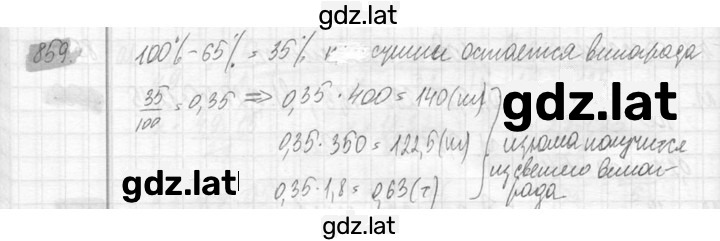 gdz.lat
859. 100% - 65% = 35% после сушки остается винограда
35/100 = 0,35 => 0,35 · 400 = 140 (кг)
gdz.lat
0,35 · 350 = 122,5 (кг) изюма получится
gdz.lat из свежего вино-
0,35 · 1,8 = 0,63 (т) града
gdz.lat